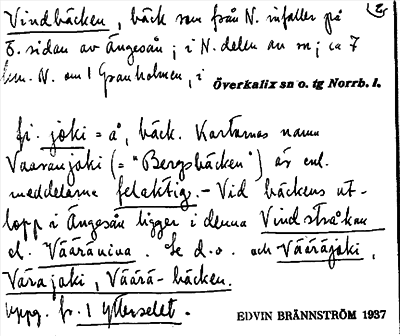 Vindbäcken, bäck som från N. infaller på
ö. sidan av Ängesån; i N. delen av sn; ca 7
km. N. om 1 Granholmen, i
Överkalix sn o. tg Norrb. l.
fi. joki = å, bäck. Kartornas namn
Vaaranjoki (= "Bergsbäcken") är enl.
meddelarne felaktig. - Vid bäckens ut-
lopp i Ängesån ligger i denna Vindstråkan
el. Vääräniva. Se d.o. och Vääräjoki,
Värajoki, Väärä-bäcken.
Uppg. fr. 1 Ytterselet.
EDVIN BRÄNNSTRÖM 1937